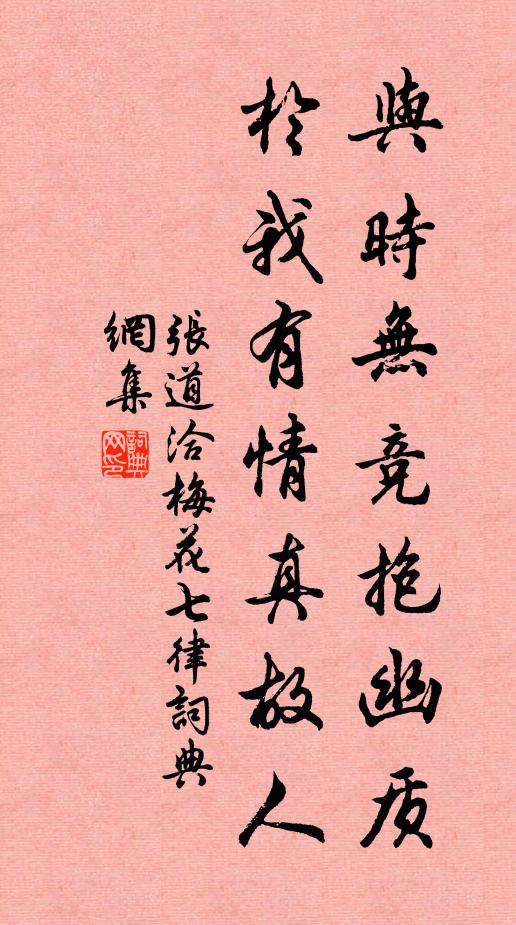 與時無竞抱幽质
於我有情真故人
張道洽梅花七律詞典
網集
詞典網印